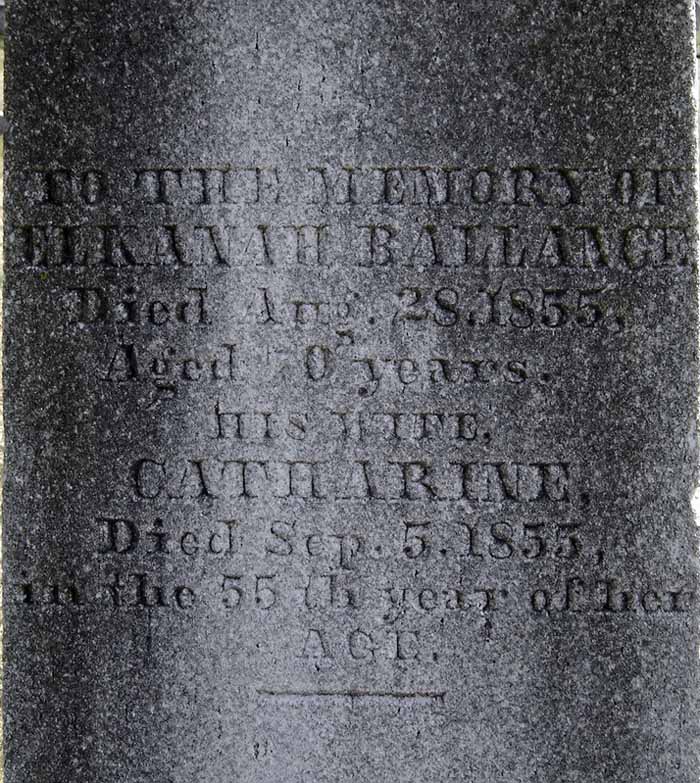 TO THE MEMORY OF
ELKANAH BALLANCE
Died Aug. 28. 1855,
Aged years.
HIS WIFE,
CATHARINE,
Died Sep. 5. 1855,
in the 55th year of her
AGE.